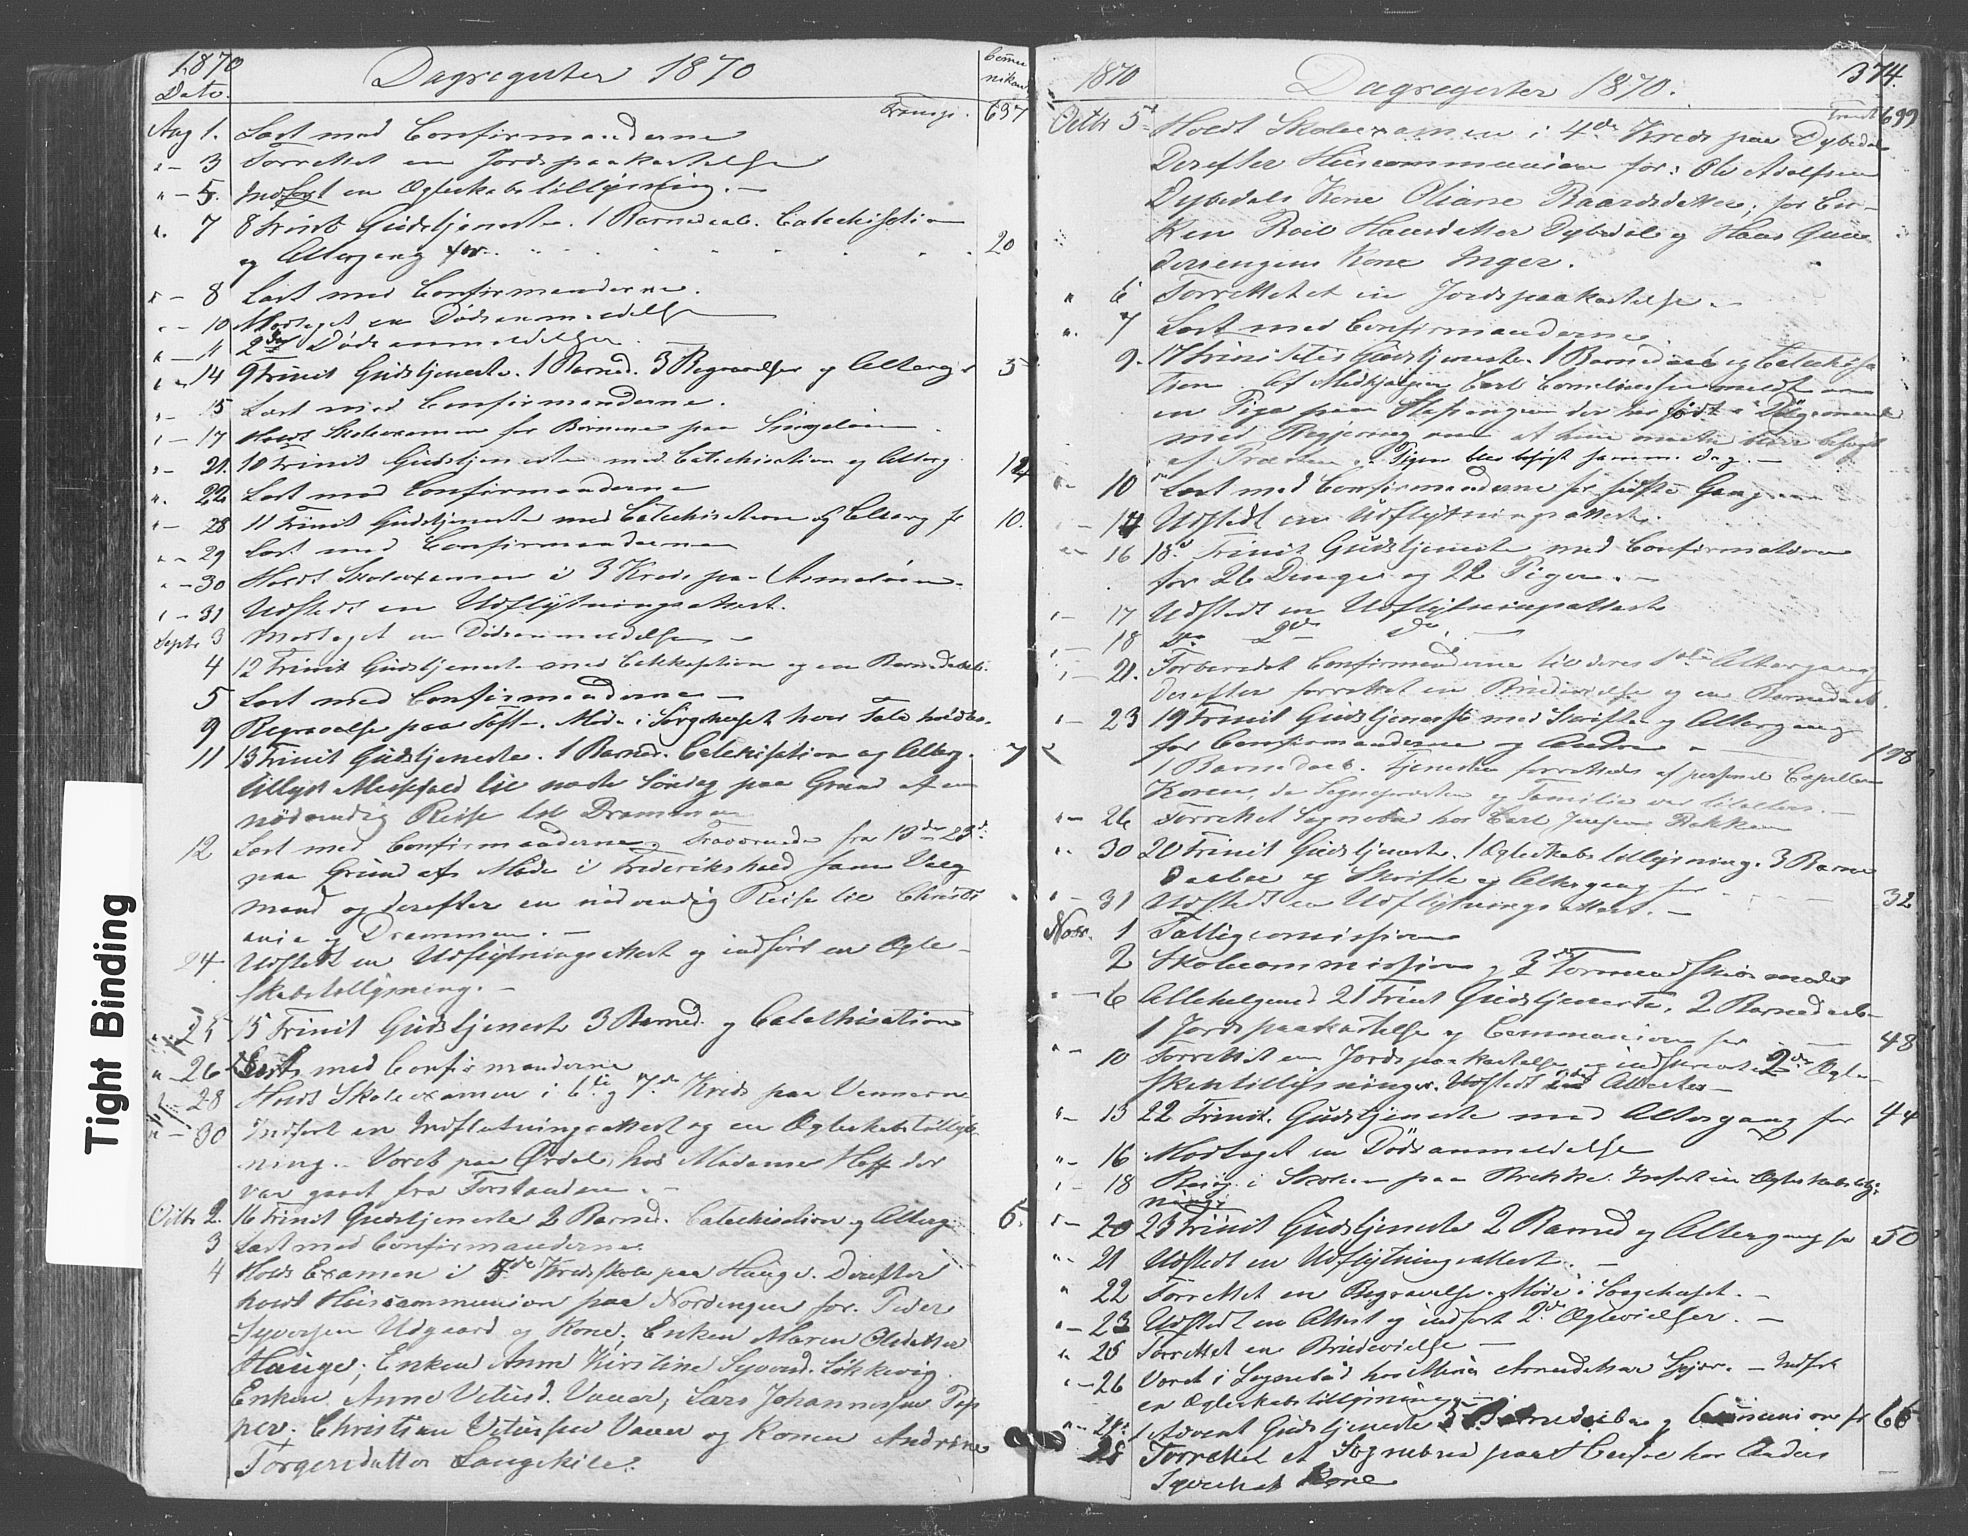 1870 Dagregister 1870 Commu
Dato. nikant
Transp. 637
Aug 1. Læst med Confirmanderne
" - 3 Forrettet en Jordspaakastelse
" - 5. Indført en Ægteskabstillysning. -
" 7 8 Trinit Gudstjeneste. 1 Barnedaab. Catechisation
og Altergang for 20
" - 8 Læst med Confirmanderne.
" - 10 Modtaget en Dødsanmeldelse
" - 11 2de Dødsanmeldelser
" - 14 9 Trinit Gudstjeneste. 1 Barned. 3 Begravelser og Alterg. 5
" - 15 Læst med Confirmanderne.
" - 17 Holdt Skoleexamen for Børnene paa Singeløen
" - 21. 10 Trinit Gudstjeneste med Catechisation og Alterg. 12
" 22 Læst med Confirmanderne
" - 28 11 Trinit Gudstjeneste med Catechisation og Alterg for 10.
" - 29 Læst med Confirmanderne
" - 30 Holdt Skoleexamen i 3 Kreds paa Asmaløen.
" - 31 Udstedt en Udflytningsattest.
Septr 3 Modtaget en Dødsanmeldelse -
4 12 Trinit Gudstjeneste med og en Barnedaab.
5 Læst med Confirmanderne -
9 Begravelse paa Møde i Sørgehuset hvor Tale holdtes.
11 13 Trinit Gudstjeneste. 1 Barned. Catechisation og Alterg. 7
tillyst Messefald til næste Søndag paa Grund af en
nødvendig Reise til Drammen
12 Læst med Confirmanderne. Fraværende fra 13de - 23d
paa Grund af Møde i Frederikshald som Valg
mand og derefter en nødvendig Reise til Christi
ania og Drammen. -
24 Udstedt en Udflytningsattest og indført en Ægte-
skabstillysning. -
" 25 15 Trinit Gudstjeneste 3 Barned. og Catechisation
" - 26 Læst med Confirmanderne
" - 28 Holdt Skoleexamen i 6te og 7de Kreds paa
" - 30 Indført en Indflytningsattest og en Ægteskabstillys-
ning. - Været paa Ørdal, hos Madame Hoff der
var gaaet fra Forstanden. -
Octbr 2. 16 Trinit Gudstjeneste 2 Barned. Catechisation og Alterg. 6
3 Læst med Confirmanderne.
4 Holdt Examen i 5de Kredsskole paa Hauge. Derefter
holdt Huuscommunion paa Nordengen for. Peder
Syversen Udgaard og Kone. Enken Maren Olsdatter
Hauge; Enken Anne Kirstine Syversd. Løkkevig
Enken Anne Vetlesd. Vauer, Lars Johannessen Pep
per. Christian Vauer og Konen Andrine
Torgersdatter Langekile.
Tight Binding
1870 Dagregister 1870. 374.
Transpt 699
Octbr 5te Holdt Skoleexamen i 4de Kreds paa Dybedal
Derefter Huuscommunion for: Ole Adolfsen
Dybedals Kone Oliane Baardsdatter, for En-
ken Hansdatter Dybedal og Hans
Kone Inger.
" 6 Forrettet en Jordspaakastelse. -
" 7 Læst med Confirmanderne
9. 17 Trinitatis Gudstjeneste. 1 Barnedaab og Catechisa
tion. Af Medhjælper Carl Corneliussen meldt om
en Pige paa der har født i Dølgsmaal
med om at hun maatte blive besøgt
af Præsten. Pigen blev besøgt samme Dag. -
" 10 Læst med Confirmanderne for sidste Gang
" - 14 Udstedt en Udflytningsattest.
" - 16 18d Trinit Gudstjeneste med Confirmation
for 26 Drenge og 22 Piger. -
" - 17 Udstedt en Udflytningsattest
" - 18 Do 2de do. -
" - 21. Forberedet Confirmanderne til deres 1ste Altergang
derefter forrettet en Brudevielse og en Barnedaab.
" - 23 19 Trinit Gudstjeneste med Skrifte og Altergang
for Confirmanderne og Andre - 198
1 Barnedaab. Tjenesten forrettedes af personel Capellan
Koren, da Sognepræsten og Familie var til Alters. -
" - 26 Forrettet Sognebud hos Carl Jensen Bekken
" 30 20 Trinit Gudstjeneste. 1 Ægteskabstillysning. 3 Barne
daabe og Skrifte og Altergang for 32
" - 31 Udstedt en Udflytningsattest. -
Novr. 1 Fattigcommission
2 Skolecommission og Formandskabsmøde
" - 6 Allehelgensd 21 Trinit Gudstjeneste. 2 Barnedaab
1 Jordspaakastelse og Communion for 48
" - 10 Forrettet en Jordspaakastelse og indskrevet 2de Ægte-
skabstillysninger. Udstedt Attester -
" - 13 22 Trinit. Gudstjeneste med Altergang for 44
" - 16 Modtaget en Dødsanmeldelse
" - 18 i Skolen paa Brekke. Indført en Ægteskabstillys-
ning.
" - 20 23 Trinit Gudstjeneste 2 Barned og Altergang for 50
" 21 Udstedt en Udflytningsattest. -
" 22 Forrettet en Begravelse. Møde i Sørgehuset. -
" - 23 Udstedt en Attest og indført 2de Ægtevielser. -
" 25 Forrettet en Brudevielse -
" - 26 Været i Sognebud hos Maria Skjær. - Indført
en Ægteskabstillysning -
" - 27. 1 Advent Gudstjeneste 3 Barnedaabe og Communion for 66
28 Forrettet et Sognebud paa hos Anders
Kone